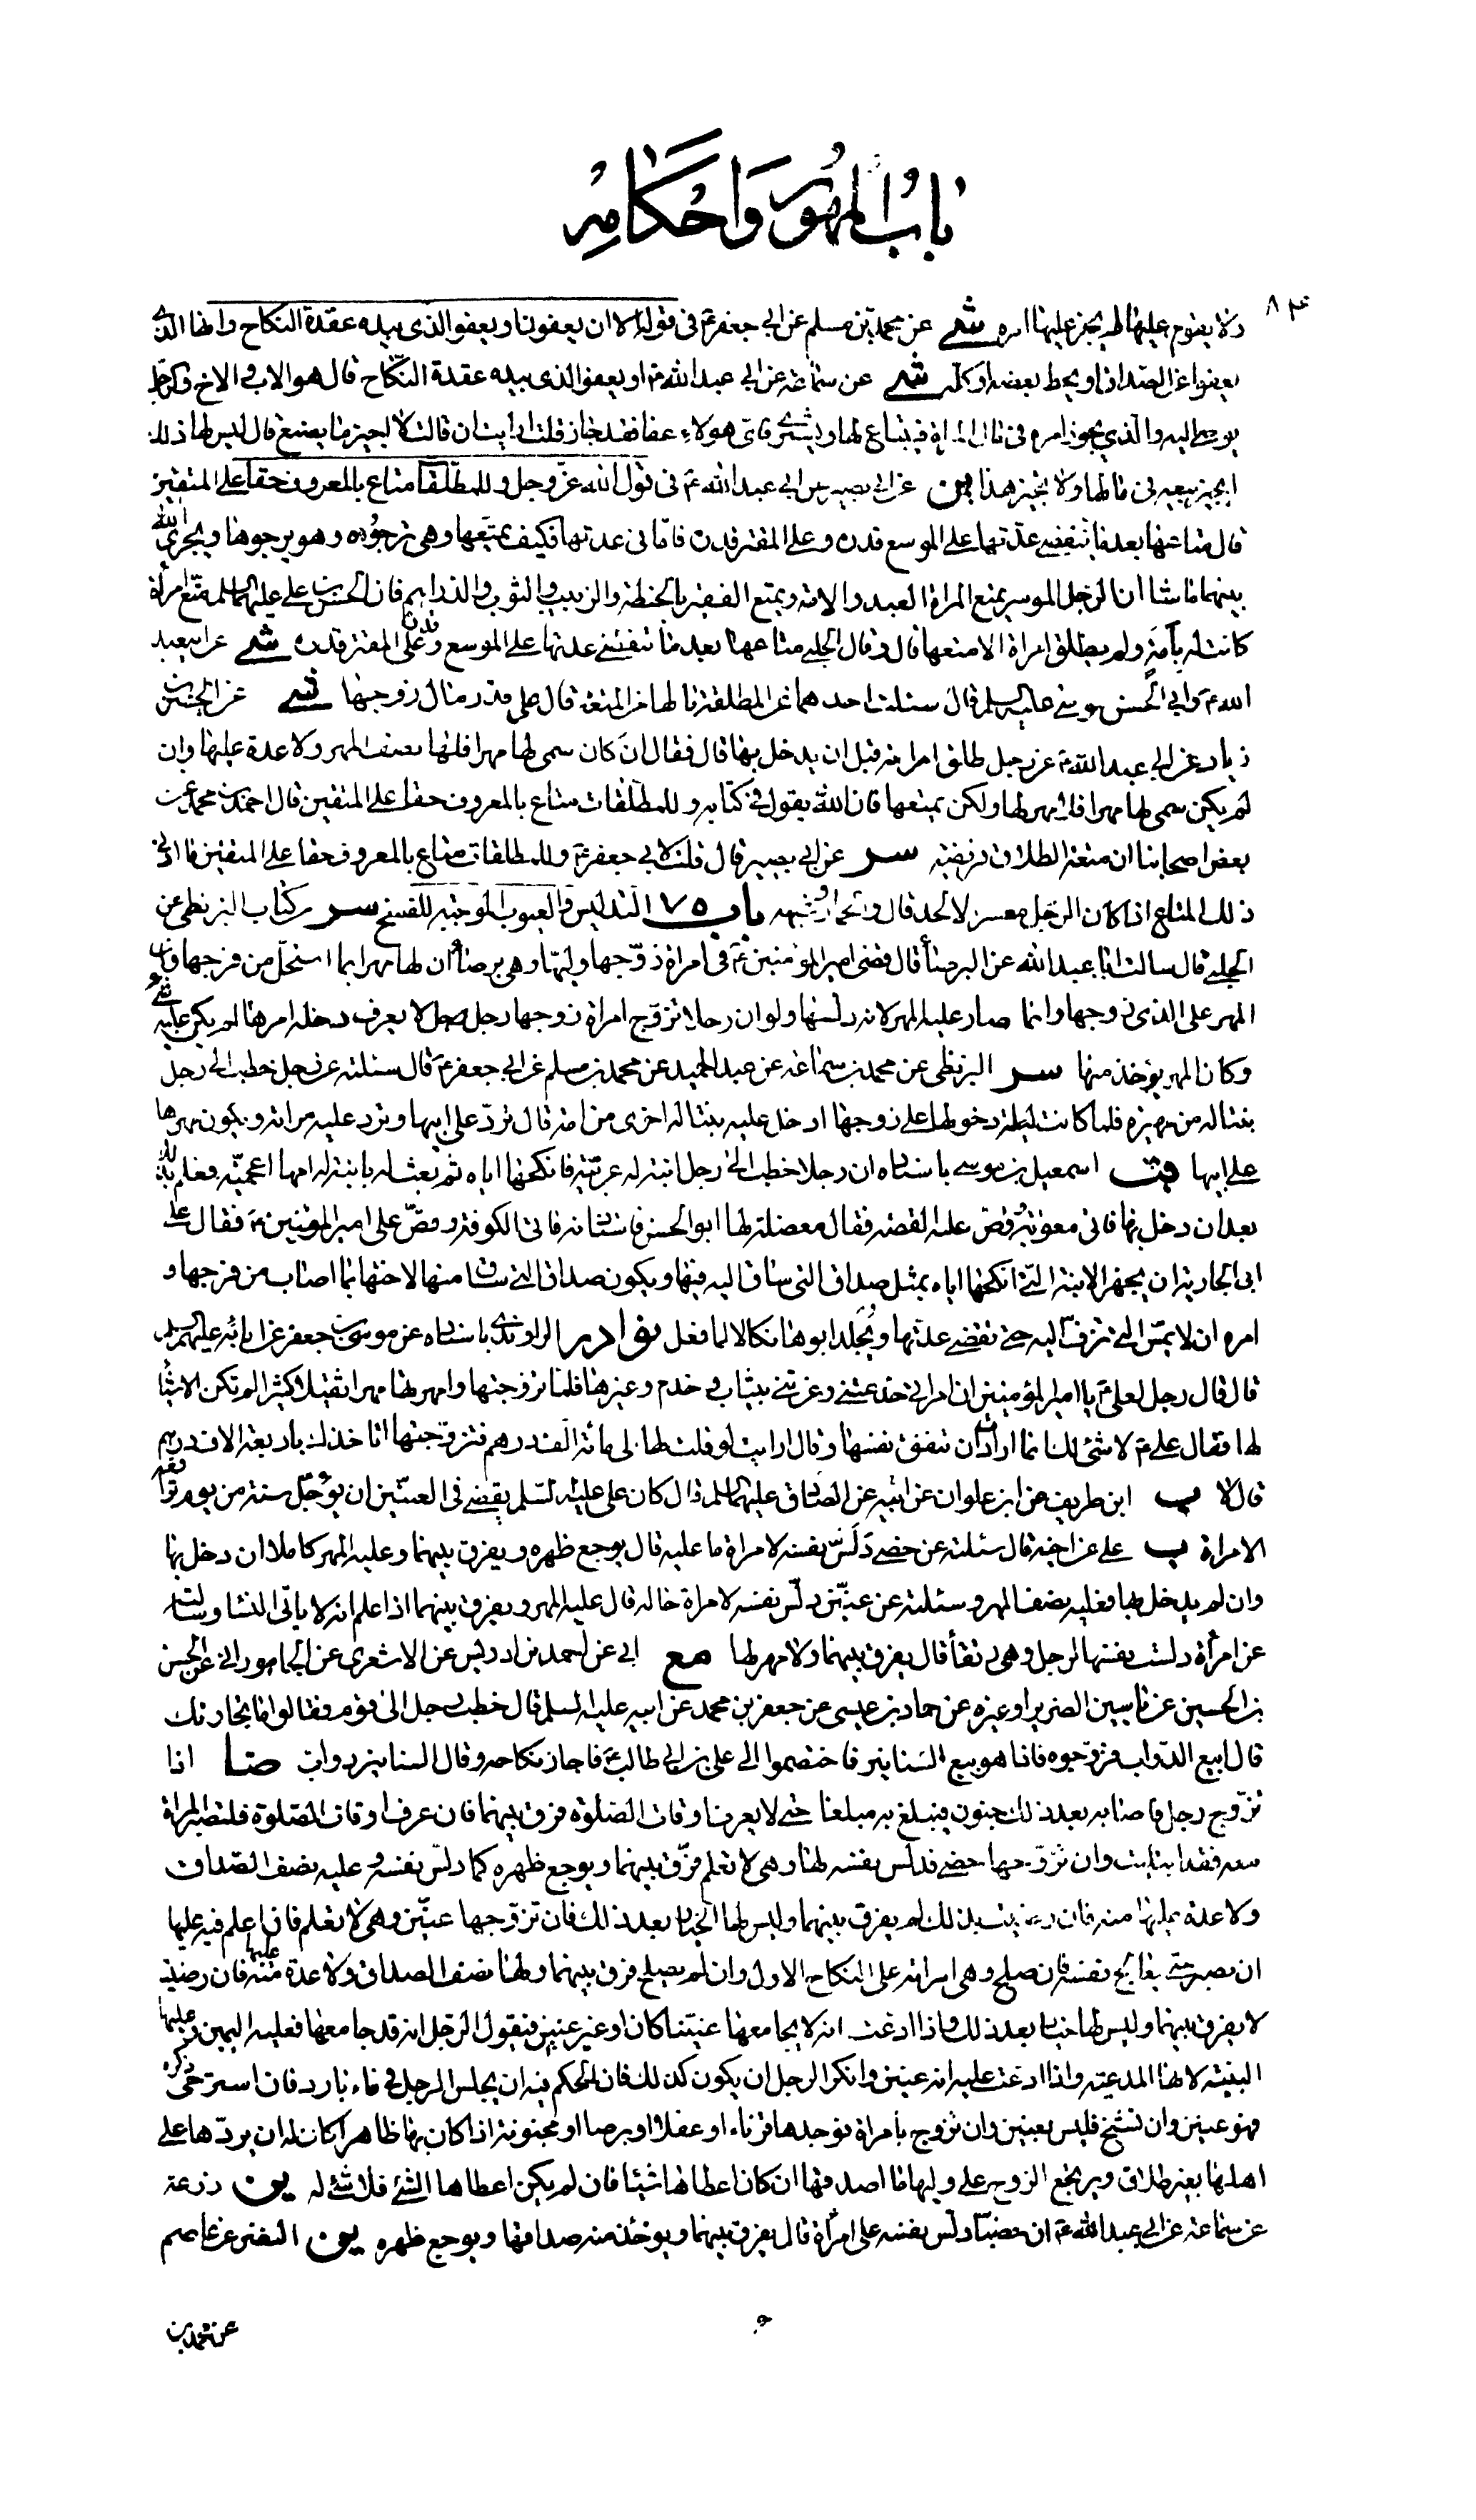 باب المهور واحكامه
٨٤
ولا يقوم عليها لم يجز عليها امره شى عن محمد بن مسلم عن ابي جعفر ع في قوله الا ان يعفون او يعفو الذي بيده عقدة النكاح وانها الذي
يعفوا عن الصداق او يحط بعضه او كله شى عن سماعة عن ابي عبد الله ع او يعفو الذي بيده عقدة النكاح قال هو الاب والاخ والرجل
يوصى اليه والذي يجوز امره في مال المراة فيبتاع لها ويشترى فاي هولاء عفا فقد جاز قلت ارايت ان قالت لا اجيز ما يصنع قال ليس لها ذلك
اتجيز بيعه في مالها ولا تجيز هذا ين عن ابي بصير عن ابي عبد الله ع في قول الله عز وجل وللمطلقات متاع بالمعروف حقا على المتقين
قال متاعها بعد ما تنقضي عدتها على الموسع قدره وعلى المقتر قدره فاما في عدتها فكيف يمتعها وهي ترجوه وهو يرجوها ويجري الله
بينهما ما شاء ان الرجل الموسر يمتع المراة العبد والامة ويمتع الفقير بالحنطة والزبيب والثوب والدراهم فان الحسن بن علي عليهما السلم متع امرأة
كانت له بأمة ولم يطلق امراة الا متعها قال وقال الحلبي متاعها بعد ما تنقضي عدتها على الموسع قدره وعلى المقتر قدره شى عن ابي عبد
الله ع وابي الحسن موسى عليه السلم قال سئلت احدهما عن المطلقة ما لها من المتعة قال على قدر مال زوجها شى عن الحسن بن
زياد عن ابي عبد الله ع عن رجل طلق امراته قبل ان يدخل بها قال فقال ان كان سمى لها مهرا فلها نصف المهر ولا عدة عليها وان
لم يكن سمى لها مهرا فلا مهر لها ولكن يمتعها فان الله يقول في كتابه وللمطلقات متاع بالمعروف حقا على المتقين قال احمد بن محمد عن
بعض اصحابنا ان متعة الطلاق فريضة سر عن ابي بصير قال قلت لابي جعفر ع وللمطلقات متاع بالمعروف حقا على المتقين ما ادنى
ذلك المتاع اذا كان الرجل معسرا لا يجد قال الخمار وشبهه باب ٧٥ التدليس والعيوب الموجبة للفسخ سر من كتاب البزنطي عن
الحلبي قال سالت ابا عبد الله عن البرصاء قال قضى امير المؤمنين ع في امراة زوجها وليها وهي برصاء ان لها مهرا بما استحل من فرجها وان
المهر على الذي زوجها وانما صار عليه المهر لانه دلسها ولو ان رجلا تزوج امراة زوجها رجل لا يعرف دخلة امرها لم يكن عليه شئ
وكان المهر يؤخذ منها سر البزنطي عن محمد بن سماعة عن عبد الحميد عن محمد بن مسلم عن ابي جعفر ع قال سئلته عن رجل خطب الى رجل
بنتا له من مهيرة فلما كانت ليلة دخولها على زوجها ادخل عليه بنتا له اخرى من امة قال ترد على ابيها وترد عليه امراته ويكون مهرها
على ابيها قب اسمعيل بن موسى باسناده ان رجلا خطب الى رجل ابنة له عربية فانكحها اياه ثم بعث له بابنة له امها اعجمية فعلم بذلك
بعد ان دخل بها فاتى معوية وقص عليه القصة فقال معضلة لها ابو الحسن فاستاذنه فاتى الكوفة وقص على امير المؤمنين ع فقال على
ابي الجارية ان يجهز الابنة التي انكحها اياه بمثل صداق التي ساق اليه فيها ويكون صداق التي ساق منها لاختها بما اصاب من فرجها و
امره ان لا يمس التي تزف اليه حتى تقضي عدتها ويجلد ابوها نكالا لما فعل نوادر الراوندي باسناده عن موسى بن جعفر عن ابائه عليهم السلم
قال قال رجل لعلي ع يا امير المؤمنين ان امراتي خدعتني وغرتني بثياب وخدم وغيرها فلما تزوجتها وامهرتها مهرا ثقيلا كثيرا لم تكن الاشياء
لها فقال علي ع لا شئ لك انما ارادت ان تنفق نفسها وقال ارايت لو قلت لها لي مائة الف درهم فتزوجتها اتاخذك باربعة الاف درهم
قال لا ب ابن طريف عن ابن علوان عن ابيه عن الصادق عليهما السلم قال كان علي عليه السلم يقضي في العنين ان يؤجل سنة من يوم ترافعه
الامراة ب علي عن اخيه قال سئلته عن خصي دلس نفسه لامراة ما عليه قال يوجع ظهره ويفرق بينهما وعليه المهر كاملا ان دخل بها
وان لم يدخل بها فعليه نصف المهر وسئلته عن عنين دلس نفسه لامراة ما حاله قال عليه المهر ويفرق بينهما اذا علم انه لا ياتي النساء وسالته
عن امرأة دلست نفسها لرجل وهي رتقاء قال يفرق بينهما ولا مهر لها مع ابي عن احمد بن ادريس عن الاشعري عن الجاموراني عن الحسن
بن الحسين عن ياسين الضرير او غيره عن حماد بن عيسى عن جعفر بن محمد عن ابيه عليه السلم قال خطب رجل الى قوم فقالوا ما تجارتك
قال ابيع الدواب فزوجوه فاذا هو يبيع السنانير فاختصموا الى علي بن ابي طالب ع فاجاز نكاحه وقال السنانير دواب ضا اذا
تزوج رجل فاصابه بعد ذلك جنون فيبلغ به مبلغا حتى لا يعرف اوقات الصلوة فرق بينهما فان عرف اوقات الصلوة فلتصبر المراة
معه فقد ابتليت وان تزوجها خصي فدلس نفسه لها وهي لا تعلم فرق بينهما ويوجع ظهره كما دلس نفسه وعليه نصف الصداق
ولا عدة عليها منه فان رضيت بذلك لم يفرق بينهما وليس لها الخيار بعد ذلك فان تزوجها عنين وهي لا تعلم فان علم فيه عليها
ان تصبر حتى يعالج نفسه فان صلح وهي امراته على النكاح الاول وان لم يصلح فرق بينهما ولها نصف الصداق ولا عدة عليها منه فان رضيت
لا يفرق بينهما وليس لها خيار بعد ذلك واذا ادعت انه لا يجامعها عنينا كان او غير عنين فيقول الرجل انه قد جامعها فعليه اليمين وعليها
البينة لانها المدعية واذا ادعت عليه انه عنين وانكر الرجل ان يكون كذلك فان الحكم فيه ان يجلس الرجل في ماء بارد فان استرخى ذكره
فهو عنين وان تشنج فليس بعنين وان تزوج بامراة فوجدها قرناء او عفلاء او برصا او مجنونة اذا كان بها ظاهرا كان له ان يردها على
اهلها بغير طلاق ويرجع الزوج على وليها بما اصدقها ان كان اعطاها شيئا فان لم يكن اعطاها الشئ فلا شئ له ين زرعة
عن سماعة عن ابي عبد الله ع ان خصيا دلس نفسه على امرأة قال يفرق بينهما ويؤخذ منه صداقها ويوجع ظهره ين النضر عن عاصم
عن محمد بن